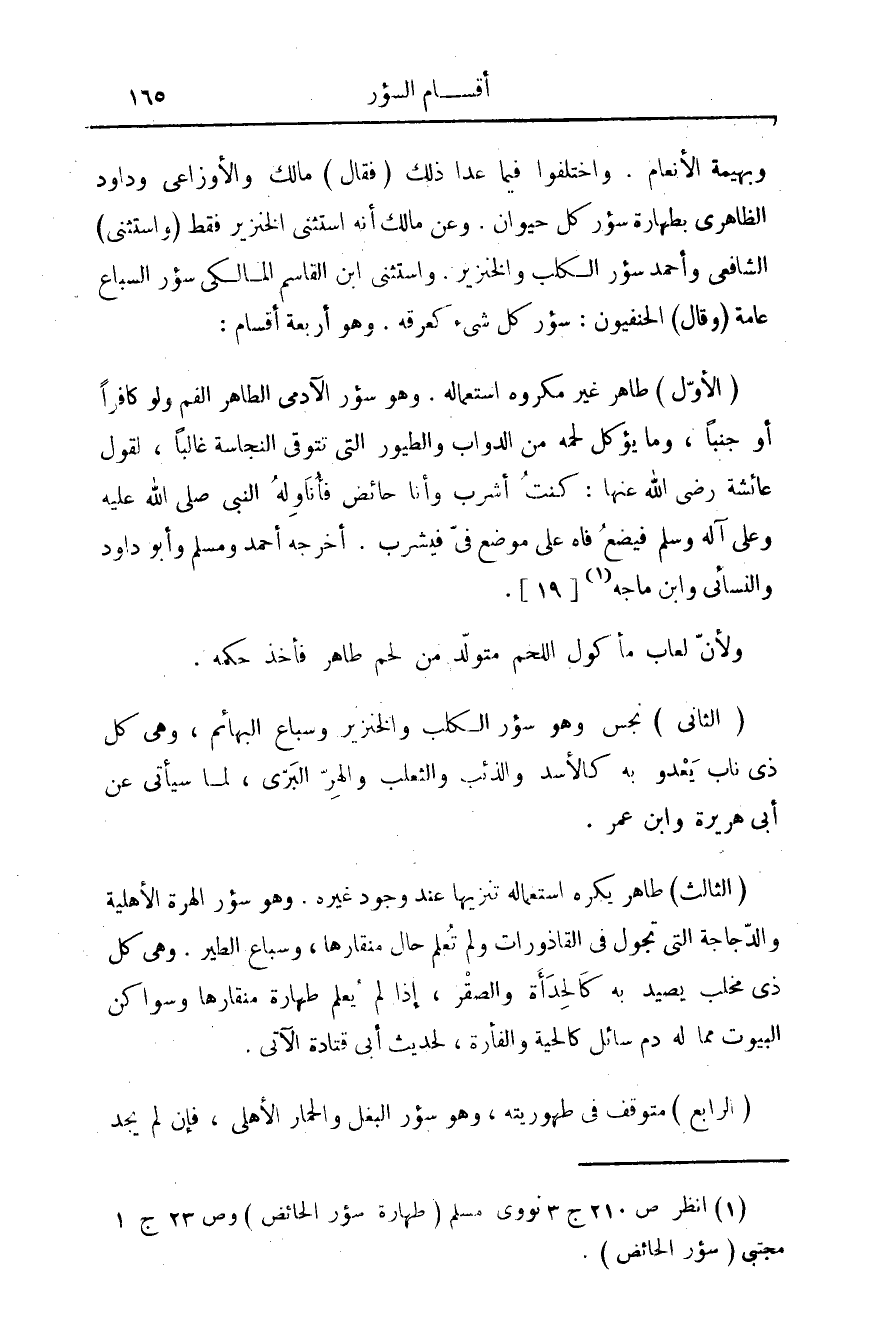 أقســـام السؤر ١٦٥
وبهيمة الأنعام . واختلفوا فيما عدا ذلك ( فقال ) مالك والأوزاعى وداود
الظاهرى بطهارة سؤر كل حيوان . وعن مالك أنه استثنى الخنزير فقط (واستثنى)
الشافعى وأحمد سؤر الكلب والخنزير . واستثنى ابن القاسم المالكى سؤر السباع
عامة (وقال) الحنفيون : سؤر كل شىء كعرقه . وهو أربعة أقسام :
( الأوّل ) طاهر غير مكروه استعماله . وهو سؤر الآدمى الطاهر الفم ولو كافراً
أو جنباً ، وما يؤكل لحمه من الدواب والطيور التى تتوقى النجاسة غالباً ، لقول
عائشة رضى الله عنها : كنتُ أشرب وأنا حائض فأُنَاوِلهُ النبى صلى الله عليه
وعلى آله وسلم فيضعُ فاه على موضع فىّ فيشرب . أخرجه أحمد ومسلم وأبو داود
والنسائى وابن ماجه(١) [ ١٩ ] .
ولأنّ لعاب مأكول اللحم متولّد من لحم طاهر فأخذ حكمه .
( الثانى ) نجس وهو سؤر الكلب والخنزير وسباع البهائم ، وهى كل
ذى ناب يَعْدو به كالأسد والذئب والثعلب والهِرّ البَرّى ، لما سيأتى عن
أبى هريرة وابن عمر .
( الثالث) طاهر يكره استعماله تنزيها عند وجود غيره . وهو سؤر الهرة الأهلية
والدّجاجة التى تجول فى القاذورات ولم تُعلم حال منقارها ، وسباع الطير . وهى كل
ذى مخلب يصيد به كَالحِدَأَة والصقْر ، إذا لم يُعلم طهارة منقارها وسواكن
البيوت مما له دم سائل كالحية والفأرة ، لحديث أبى قتادة الآتى .
( الرابع ) متوقف فى طهوريته ، وهو سؤر البغل والحمار الأهلى ، فإن لم يجد
(١) انظر ص ٢١٠ ج ٣ نووى مسلم ( طهارة سؤر الحائض ) وص ٢٣ ج ١
مجتبى ( سؤر الحائض ) .